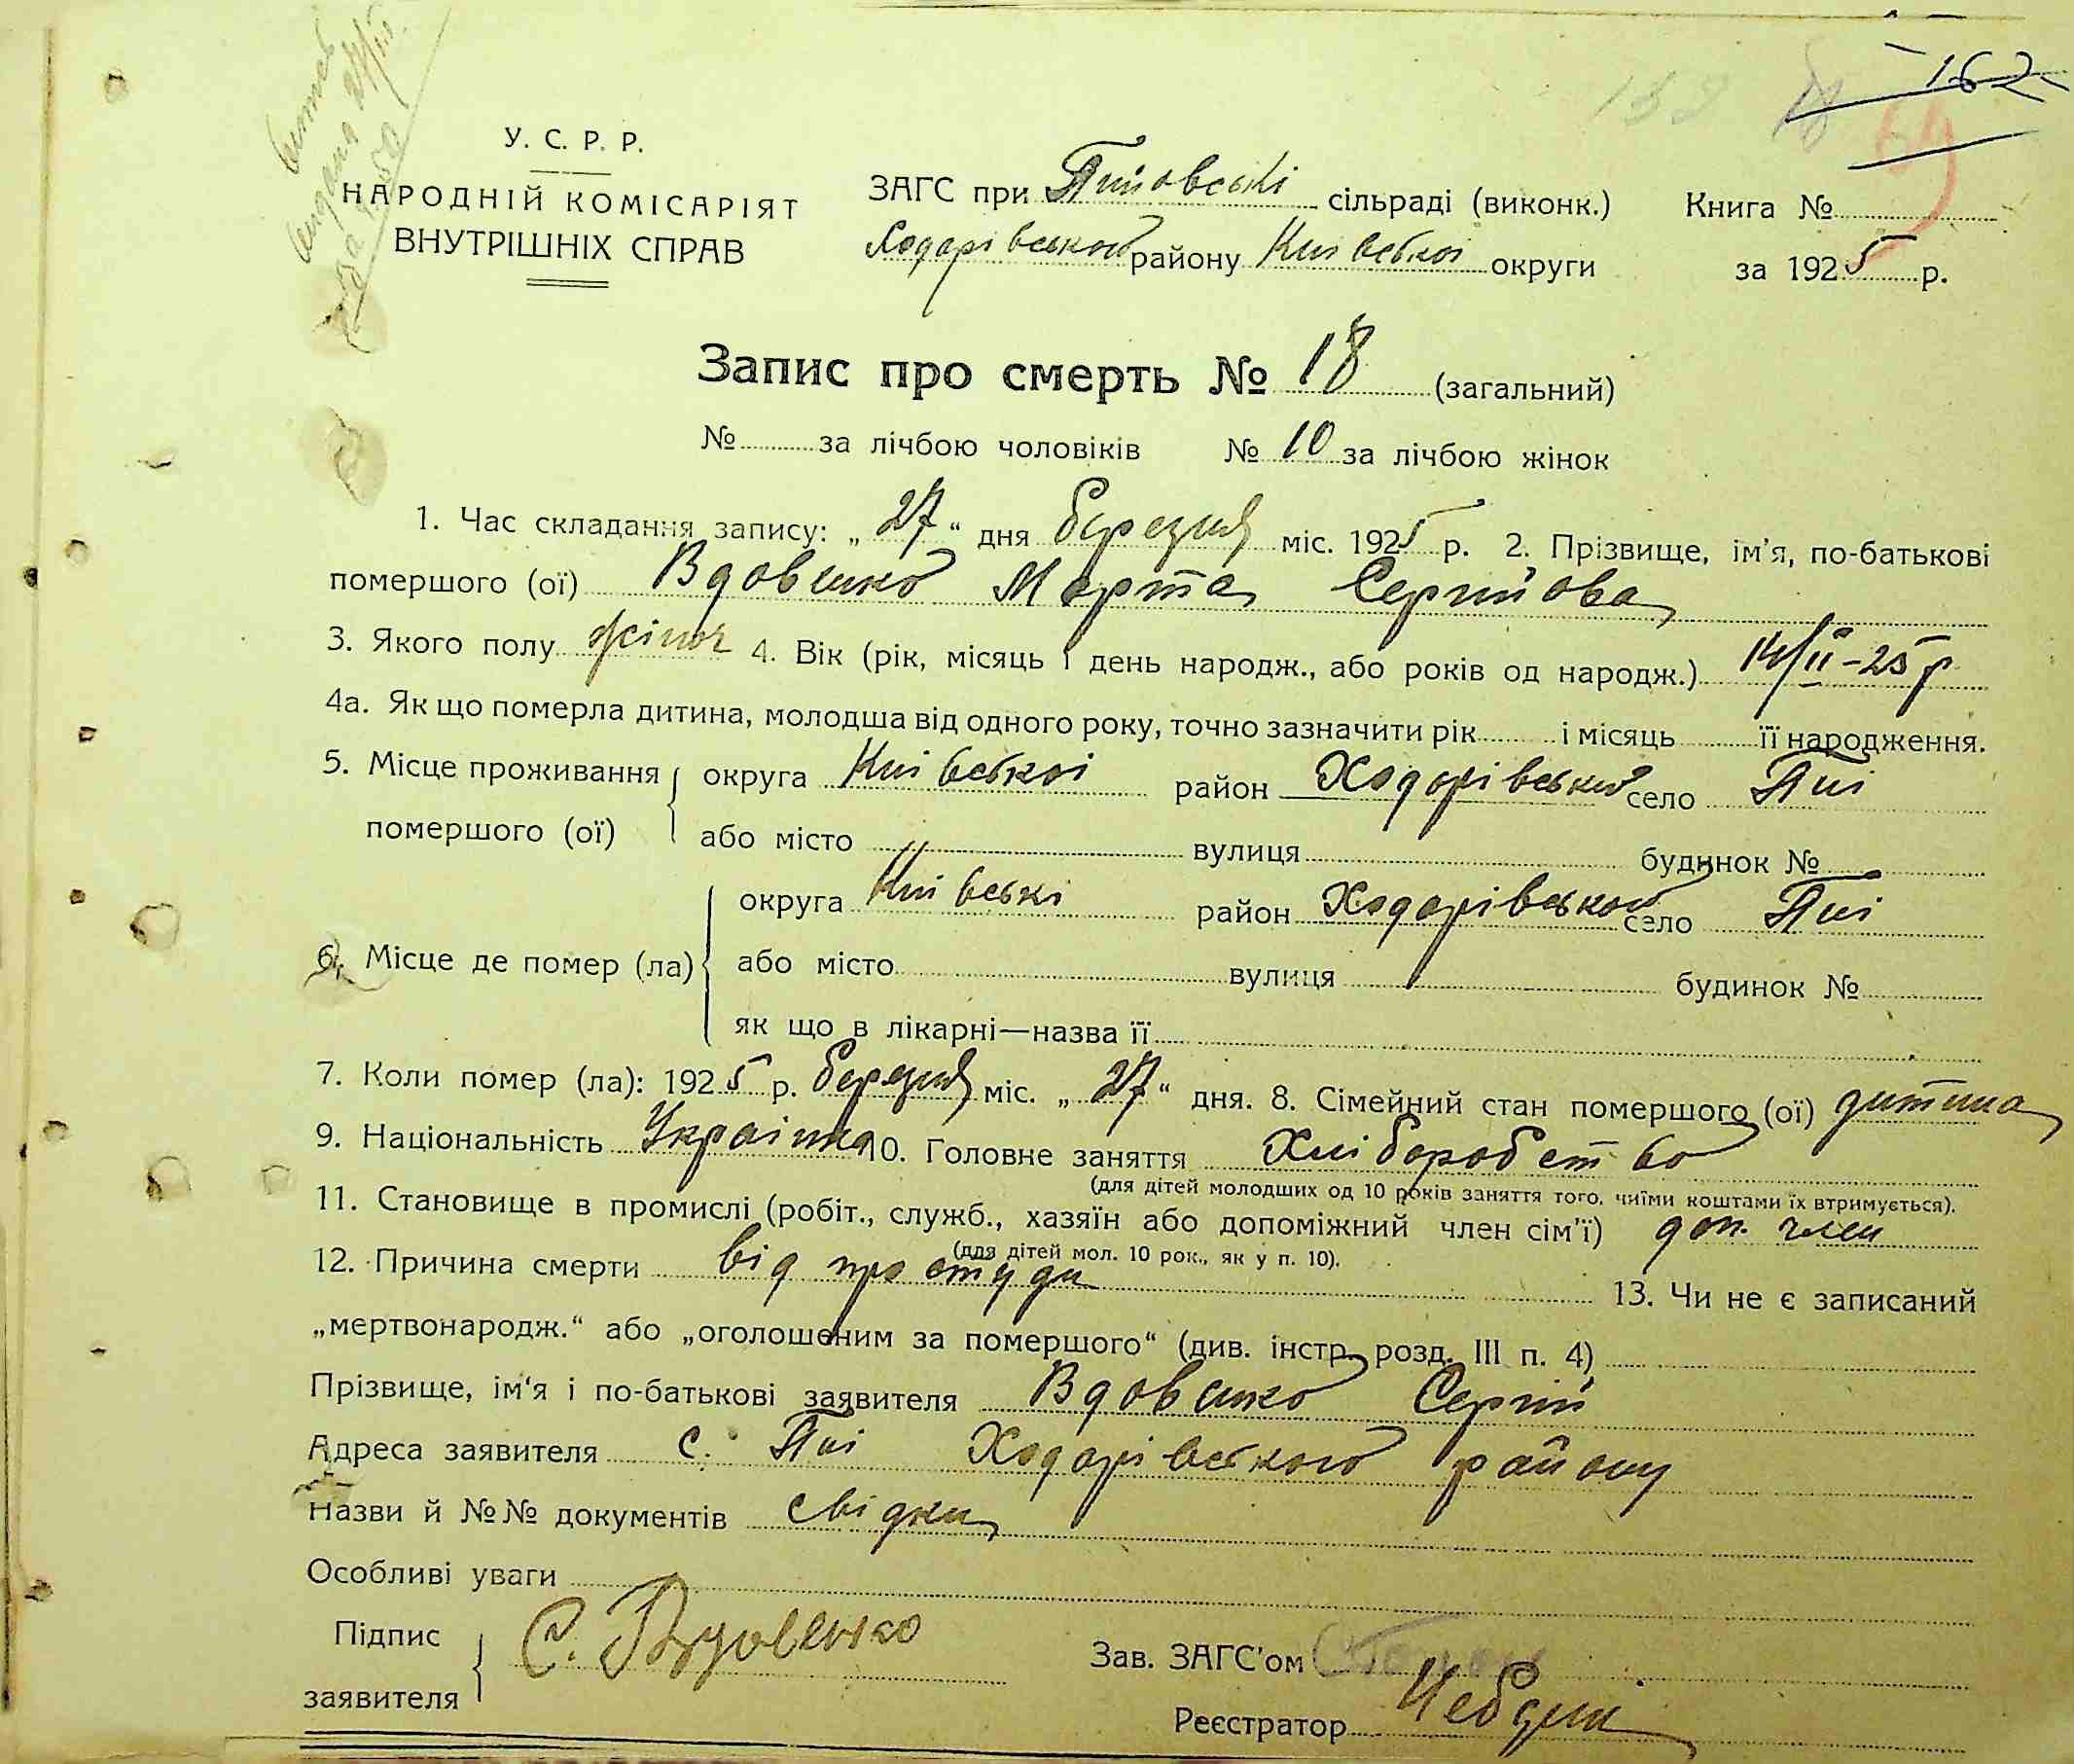 162
У. С. Р. Р.
НАРОДНІЙ КОМІСАРІЯТ
ВНУТРІШНІХ СПРАВ
ЗАГС при Пиївські сільраді (виконк.) Книга №
Ходорівського району Київської округи за 1925 р.
Запис про смерть № 18 (загальний)
№ за лічбою чоловіків № 10 за лічбою жінок
1. Час складання запису: „27“ дня березня міс. 1925 р. 2. Прізвище, ім'я, по-батькові
помершого (ої) Вдовенко Марта Сергийова
3. Якого полу жіноч 4. Вік (рік, місяць і день народж., або років од народж.) 14/II-25 р
4а. Як що померла дитина, молодша від одного року, точно зазначити рік і місяць її народження.
5. Місце проживання округа Київської район Ходорівський село Пиї
помершого (ої) або місто вулиця будинок №
округа Київські район Ходорівського село Пиї
6. Місце де помер (ла) або місто вулиця будинок №
як що в лікарні—назва її
7. Коли помер (ла): 1925 р. березня міс. „27“ дня. 8. Сімейний стан помершого (ої) дитина
9. Національність Українка 10. Головне заняття Хліборобство
(для дітей молодших од 10 років заняття того, чиїми коштами їх втримується).
11. Становище в промислі (робіт., служб., хазяїн або допоміжний член сім'ї) доп. член
(для дітей мол. 10 рок., як у п. 10).
12. Причина смерти від простуди 13. Чи не є записаний
„мертвонародж.“ або „оголошеним за помершого“ (див. інстр. розд. III п. 4)
Прізвище, ім'я і по-батькові заявителя Вдовенко Сергий
Адреса заявителя с. Пиї Ходорівського району
Назви й №№ документів свідки
Особливі уваги
Підпис заявителя С. Вдовенко
Зав. ЗАГС'ом
Реєстратор